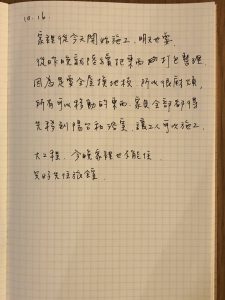 10.16.
家裡從今天開始施工，明天也要．
從昨晚就陸續把東西打包整理
因為是要全屋換地板，所以很麻煩，
所有可以移動的東西、家具全部都得
先移到陽台和浴室，讓工人可以施工．
大工程．今晚家裡也不能住．
只好先住旅館．